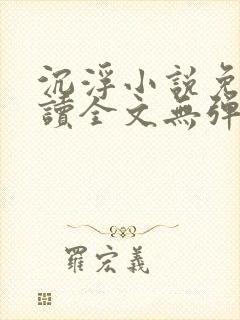 沉浮小說免
讀全文無彈
羅宏義